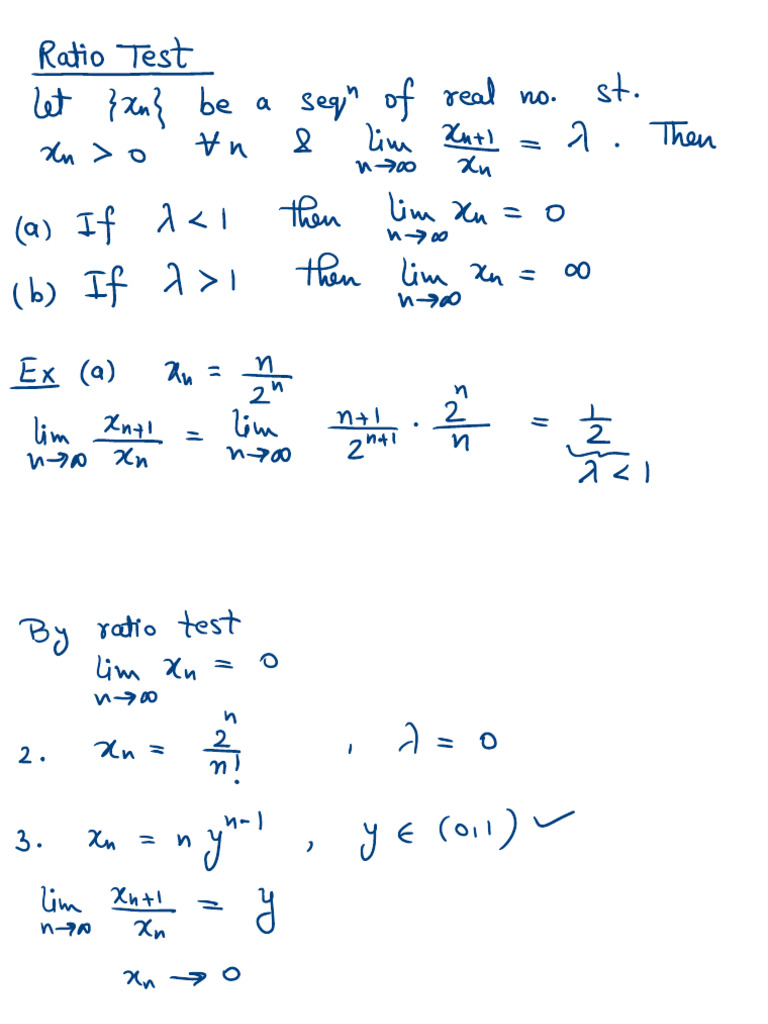 Ratio Test
Let {xₙ} be a seqⁿ of real no. st.
xₙ > 0 ∀ n & lim_{n→∞} xₙ₊₁/xₙ = λ . Then
(a) If λ < 1 then lim_{n→∞} xₙ = 0
(b) If λ > 1 then lim_{n→∞} xₙ = ∞
Ex (a) xₙ = n/2ⁿ
lim_{n→∞} xₙ₊₁/xₙ = lim_{n→∞} (n+1)/2ⁿ⁺¹ · 2ⁿ/n = 1/2
λ < 1
By ratio test
lim_{n→∞} xₙ = 0
2. xₙ = 2ⁿ/n! , λ = 0
3. xₙ = n yⁿ⁻¹ , y ∈ (0,1) ✓
lim_{n→∞} xₙ₊₁/xₙ = y
xₙ → 0